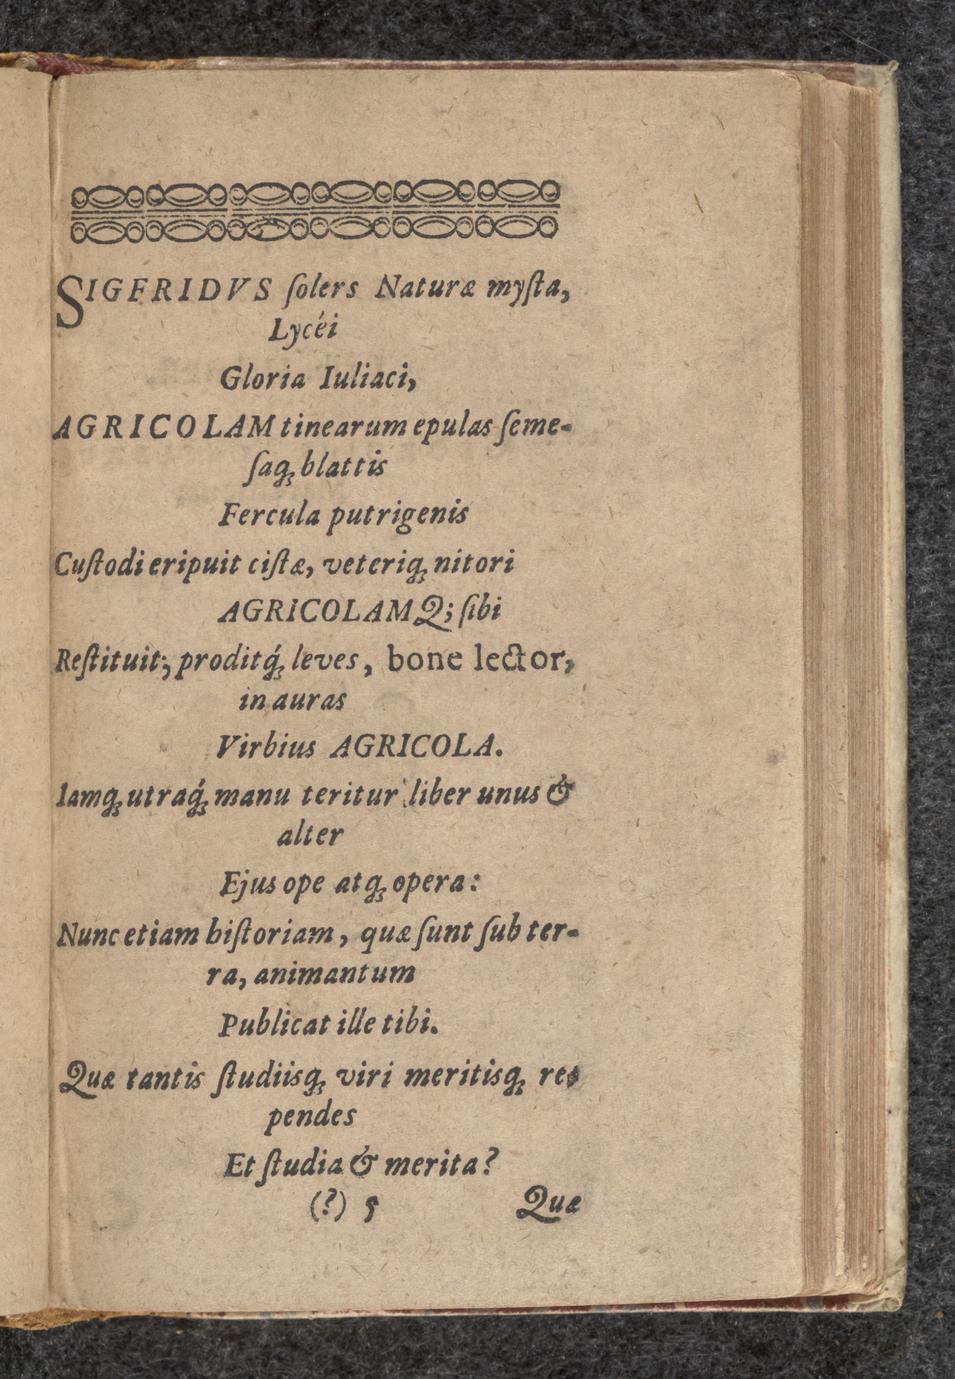 SIGFRIDVS ſolers Naturæ myſta,
Lycéi
Gloria Iuliaci,
AGRICOLAM tinearum epulas ſeme-
ſaq́ꝫ blattis
Fercula putrigenis
Cuſtodi eripuit ciſtæ, veteriqꝫ nitori
AGRICOLAMQ; ſibi
Reſtituit; proditq́ꝫ leves, bone lector,
in auras
Virbius AGRICOLA.
Iamqꝫ utraq́ꝫ manu teritur liber unus &
alter
Ejus ope atqꝫ opera:
Nunc etiam hiſtoriam, quæ ſunt ſub ter-
ra, animantum
Publicat ille tibi.
Quæ tantis ſtudiisqꝫ viri meritisqꝫ res
pendes
Et ſtudia & merita?
(?) 5 Quæ